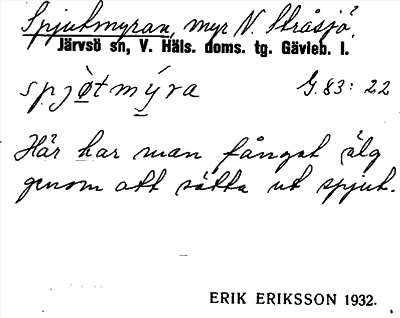 Spjutmyran, myr N. Stråsjö.
Järvsö sn, V. Häls. doms. tg. Gävleb. l.
spjòtmýra G. 83: 22
Här har man fångat älg
genom att sätta ut spjut.
ERIK ERIKSSON 1932.